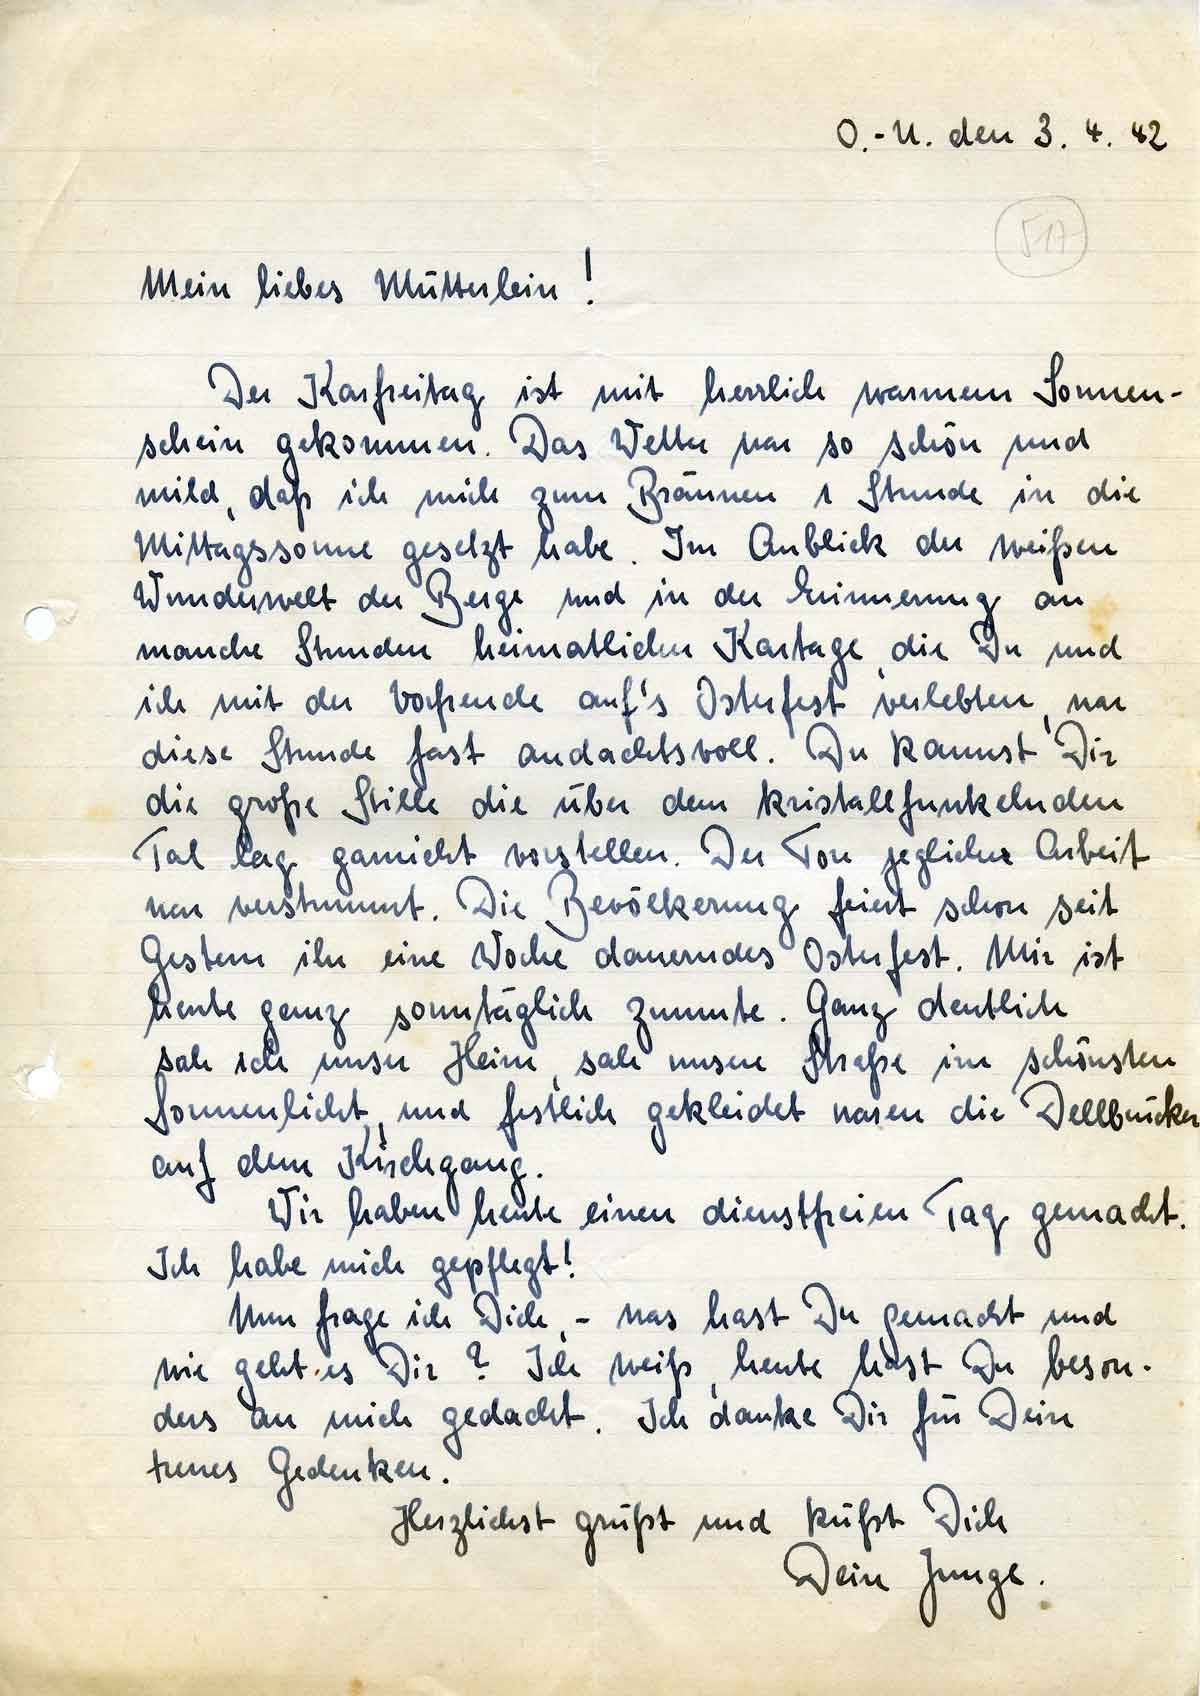 O.-U. den 3. 4. 42
517
Mein liebes Mütterlein!
Der Karfreitag ist mit herrlich warmem Sonnen-
schein gekommen. Das Wetter war so schön und
mild, daß ich mich zum Bräunen 1 Stunde in die
Mittagssonne gesetzt habe. Im Anblick der weißen
Wunderwelt der Berge und in der Erinnerung an
manche Stunden heimatlicher Kartage, die Du und
ich mit der Vorfreude auf's Osterfest verlebten, war
diese Stunde fast andachtsvoll. Du kannst Dir
die große Stille die über dem kristallfunkelnden
Tal lag garnicht vorstellen. Der Ton jeglicher Arbeit
war verstummt. Die Bevölkerung feiert schon seit
Gestern ihr eine Woche dauerndes Osterfest. Mir ist
heute ganz sonntäglich zumute. Ganz deutlich
sah ich unser Heim, sah unsere Straße im schönsten
Sonnenlicht, und festlich gekleidet waren die Dellbrücker
auf dem Kirchgang.
Wir haben heute einen dienstfreien Tag gemacht.
Ich habe mich gepflegt!
Nun frage ich Dich, - was hast Du gemacht und
wie geht es Dir? Ich weiß, heute hast Du beson-
ders an mich gedacht. Ich danke Dir für Dein
treues Gedenken.
Herzlichst grüßt und küßt Dich
Dein Junge.